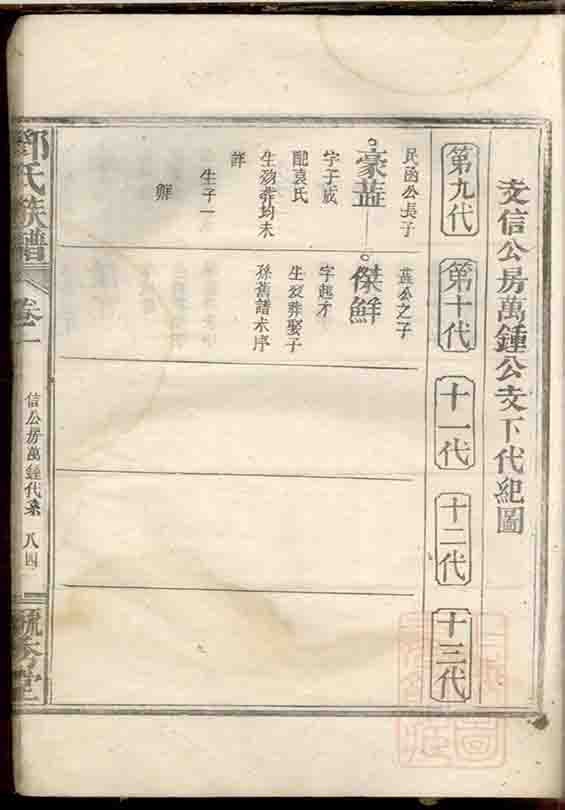 支信公房萬鍾公支下代紀圖
第九代
第十代
十一代
十二代
十三代
民函公長子
豪蓝
字于成
配袁氏
生殁葬均未
詳
生子一
鮮
蓝公之子
傑鮮
字起才
生殁葬娶子
孫舊譜未序
鄧氏族譜
卷二
信公房萬鍾代系
八四
毓秀堂